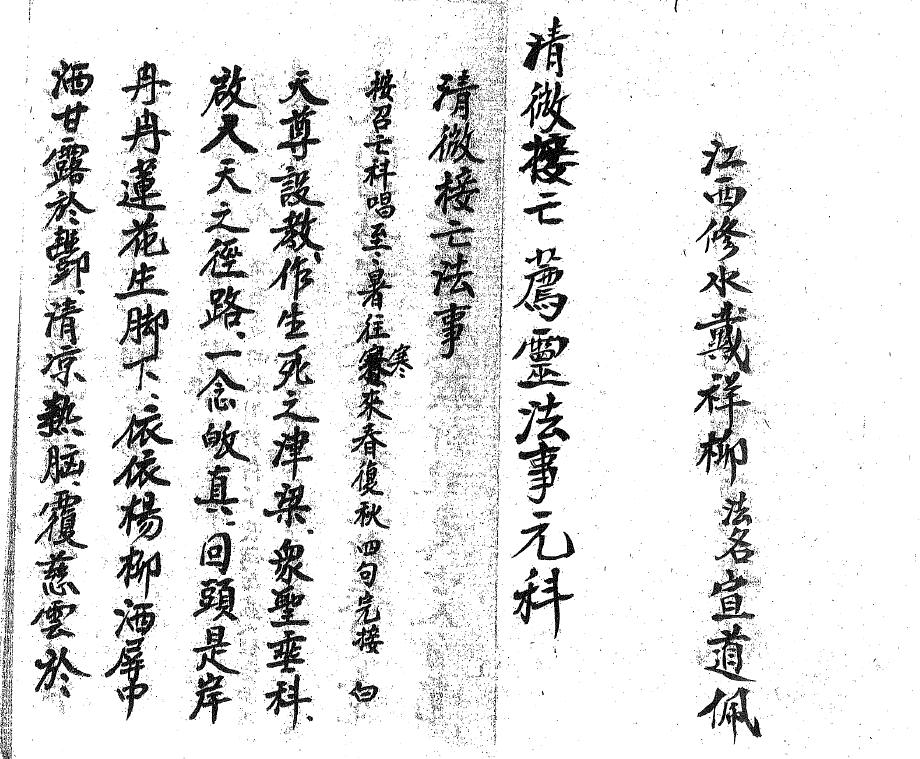 江西修水戴祥柳法名宣道佩
清微接亡薦靈法事元科
清微接亡法事
按召亡科唱至、暑往寒來春復秋四句完接 白
天尊設教、作生死之津梁、衆聖垂科、
啟人天之徑路、一念皈真、回頭是岸
冉冉蓮花生脚下、依依楊柳洒屏中
洒甘露於酆、清凉熱腦、覆慈雲於、